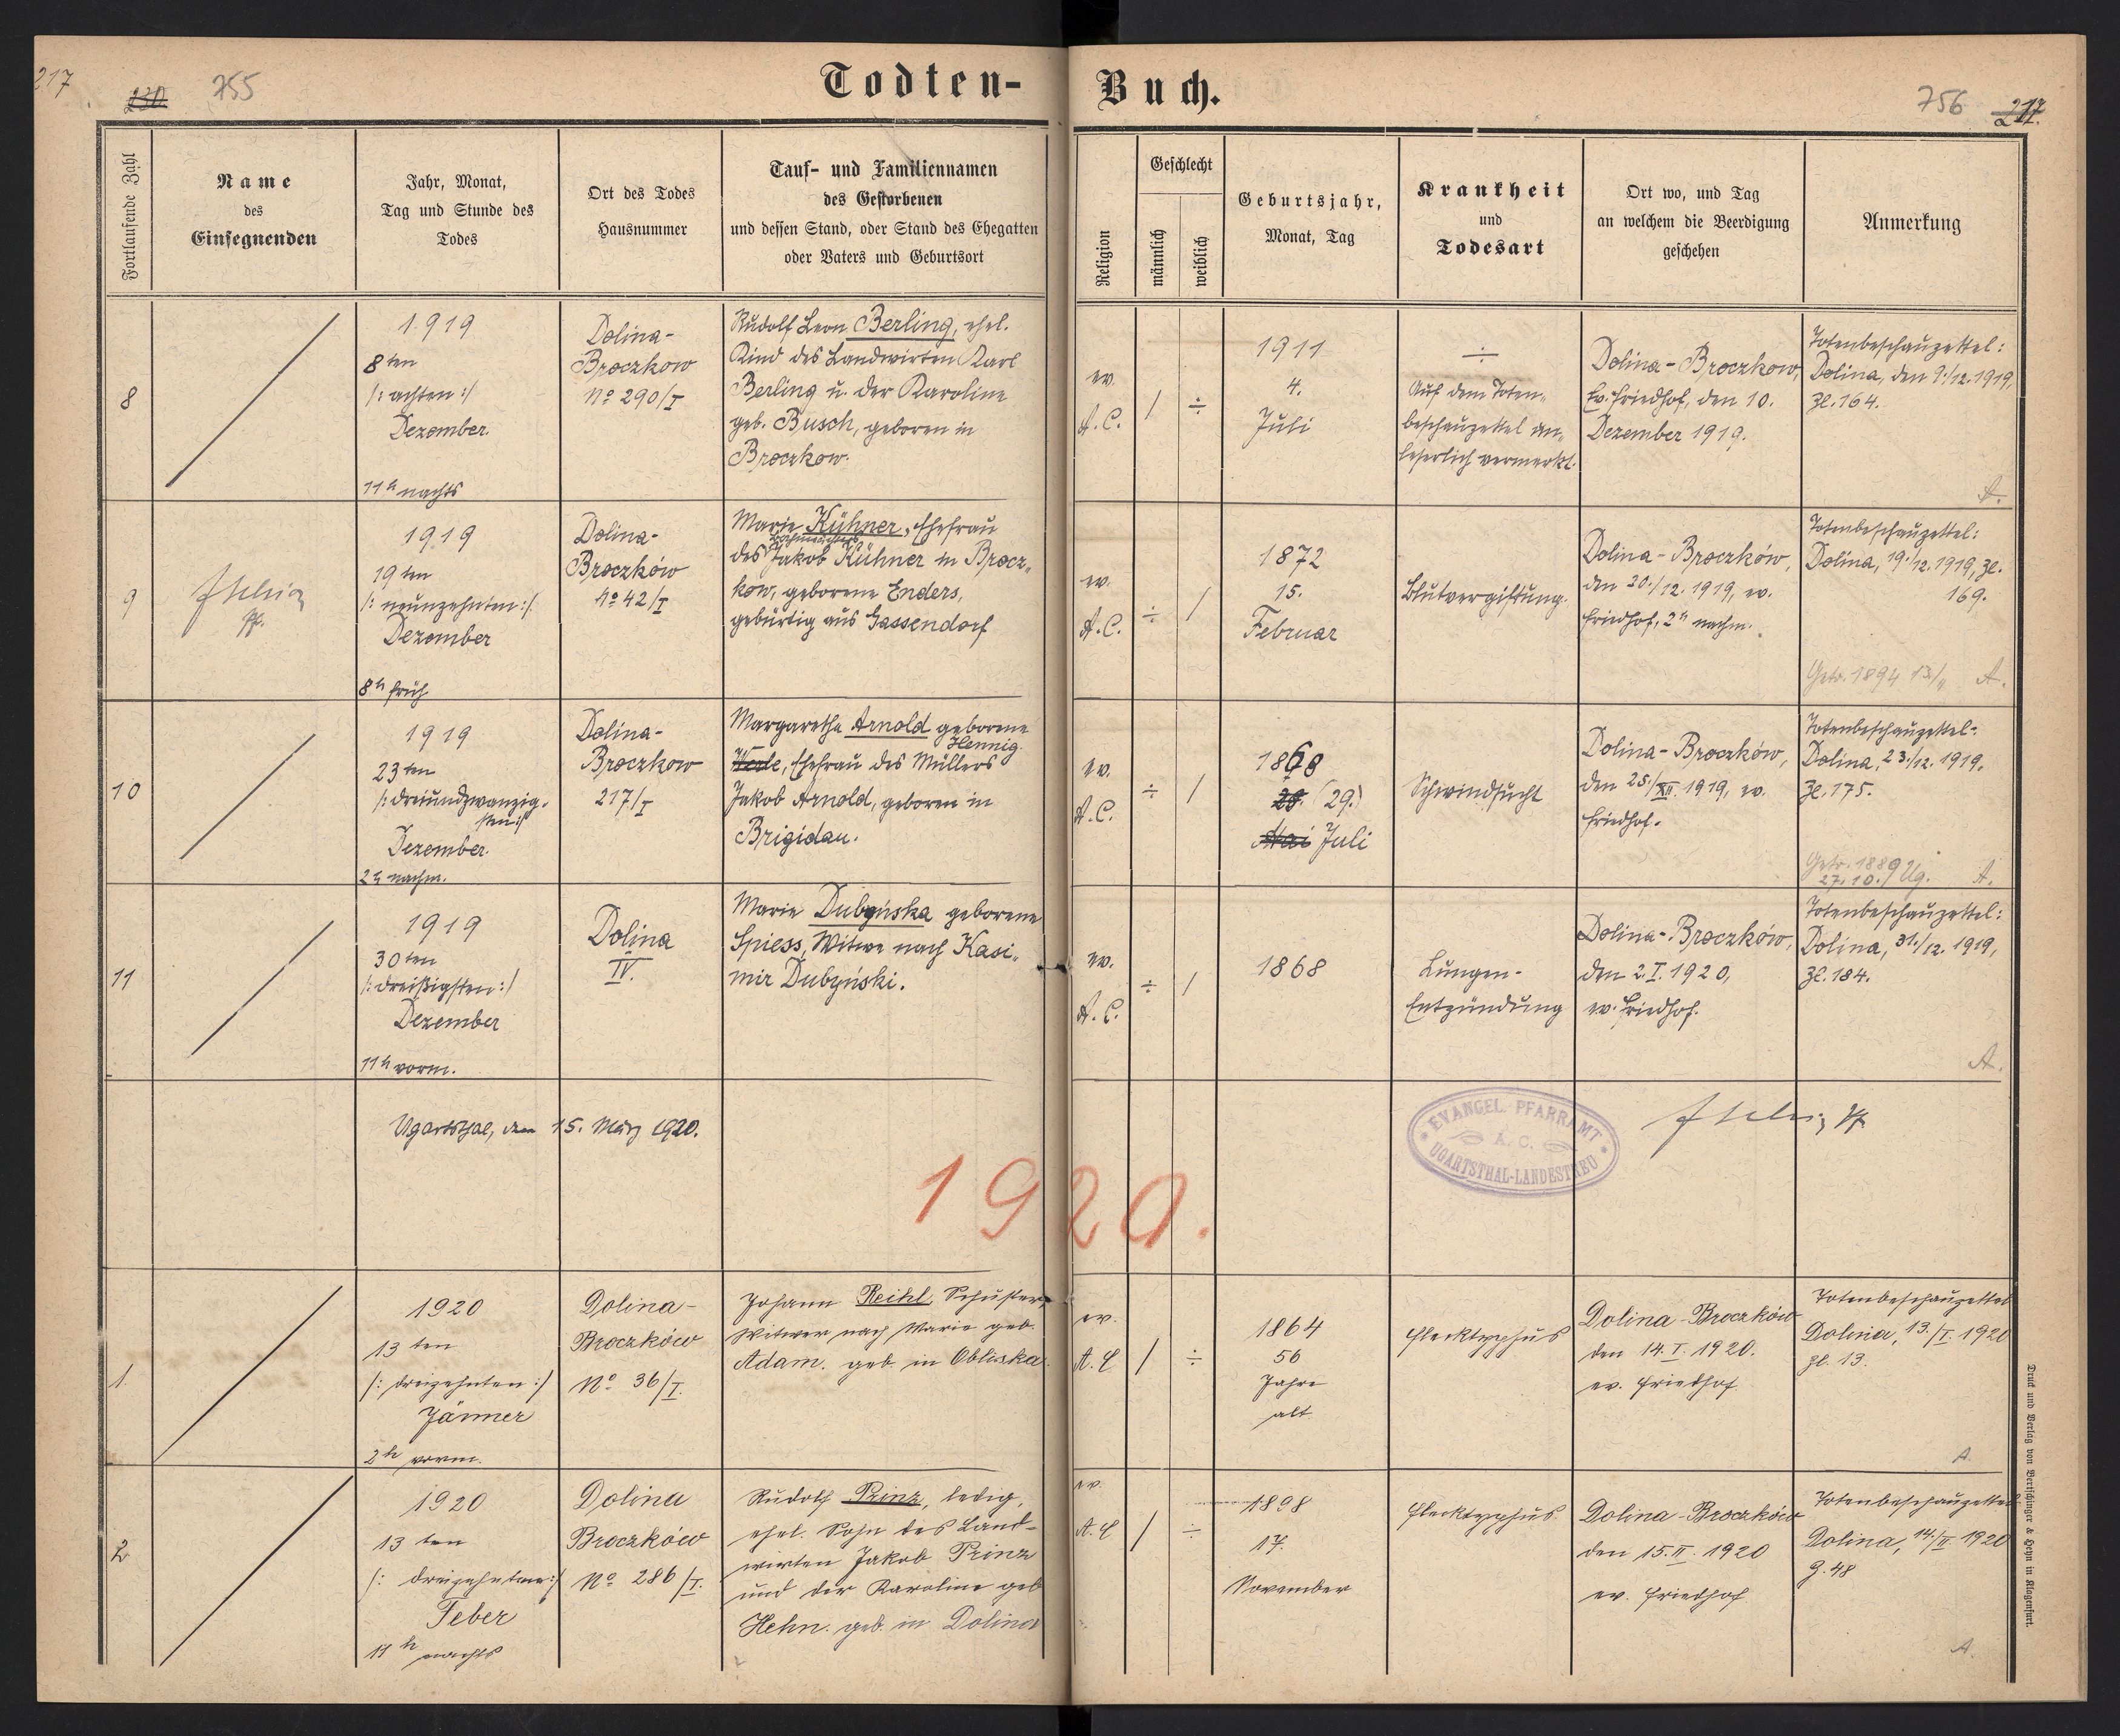 217
755
Todten-
Buch.
756
217.
Fortlaufende Zahl
Name
des
Einsegnenden
Jahr, Monat,
Tag und Stunde des
Todes
Ort des Todes
Hausnummer
Tauf- und Familiennamen
des Gestorbenen
und dessen Stand, oder Stand des Ehegatten
oder Vaters und Geburtsort
Religion
Geschlecht
männlich
weiblich
Geburtsjahr,
Monat, Tag
Krankheit
und
Todesart
Ort wo, und Tag
an welchem die Beerdigung
geschehen
Anmerkung
8
1919
8ten
/: achten :/
Dezember
11h nachts
Dolina-
Broczkow
No 290/I
Rudolf Leon Berling, ehel.
Kind des Landwirten Karl
Berling u. der Karoline
geb. Busch, geboren in
Broczkow.
ev.
A.C.
/
÷
1911
4.
Juli
÷
Auf dem Toten-
beschauzettel un-
leserlich vermerkt.
Dolina-Broczkow,
Ev. Friedhof, den 10.
Dezember 1919.
Totenbeschauzettel:
Dolina, den 9./12.1919,
Zl. 164.
A.
9
Pf.
1919
19ten
/: neunzehnten :/
Dezember
8h früh
Dolina-
Broczków
No 42/I
Marie Kühner, Ehefrau
des Jakob Kühner in Brocz-
kow, geborene Enders,
gebürtig aus Gassendorf
ev.
A.C.
÷
/
1872
15.
Februar
Blutvergiftung.
Dolina-Broczków,
den 20./12.1919, ev.
Friedhof, 2h nachm.
Totenbeschauzettel:
Dolina, 19./12.1919, Zl.
169.
Getr. 1894 13/11 A.
10
1919
23ten
/: dreiundzwanzig-
sten :/
Dezember.
2h nachm.
Dolina-
Broczkow
217/I
Margaretha Arnold geborene
Hennig
Werle, Ehefrau des Müllers
Jakob Arnold, geboren in
Brigidau.
ev.
A.C.
÷
/
1868
(29.)
Mai Juli
Schwindsucht
Dolina-Broczków,
den 25./XII. 1919, ev.
Friedhof.
Totenbeschauzettel:
Dolina, 23./12. 1919.
Zl. 175.
Getr. 1889 Ug.
27.10. A.
11
1919
30ten
/: dreißigsten :/
Dezember
11h vorm.
Dolina
IV.
Marie Dubyńska geborene
Spiess, Witwe nach Kasi-
mir Dubyński.
ev.
A.C.
÷
/
1868
Lungen-
Entzündung
Dolina-Broczków,
den 2.I.1920,
ev. Friedhof.
Totenbeschauzettel:
Dolina, 31./12. 1919,
Zl. 184.
A.
Ugartsthal, den 15. März 1920.
EVANGEL. PFARRAMT
A. C.
UGARTSTHAL-LANDESTREU
Pf.
1920.
1.
1920
13 ten
/: dreizehnten :/
Jänner
2h vorm.
Dolina-
Broczków
No 36/I.
Johann Reikl Schuster,
Witwer nach Marie geb.
Adam. geb. in Obliska.
ev.
A.C
/
÷
1864
56
Jahre
alt
Flecktyphus
Dolina-Broczków
den 14.I.1920.
ev. Friedhof
Totenbeschauzettel
Dolina, 13./I. 1920
Zl. 13.
A
2
1920
13 ten
/: dreizehnten :/
Feber
11h nachts
Dolina
Broczków
No 286/I.
Rudolf Prinz, ledig,
ehel. Sohn des Land-
wirten Jakob Prinz
und der Karoline geb
Hehn. geb. in Dolina
ev.
A.C
/
÷
1898
17.
November
Flecktyphus
Dolina-Broczków
den 15.II.1920
ev. Friedhof
Totenbeschauzettel
Dolina, 14./II. 1920
Z. 48
A
Druck und Verlag von Bertschinger & Heyn in Klagenfurt.